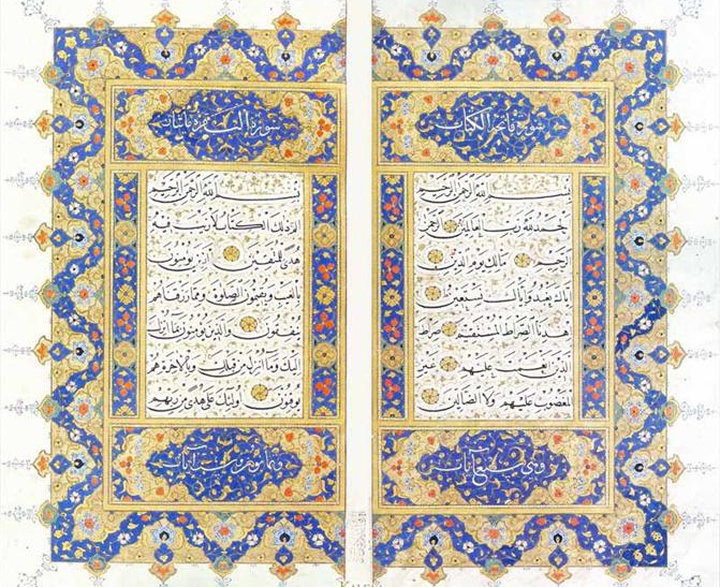 سورة فاتحة الكتاب
بسم الله الرحمن الرحيم
الحمد لله رب العالمين الرحمن
الرحيم مالك يوم الدين
اياك نعبد واياك نستعين
اهدنا الصراط المستقيم صراط
الذين انعمت عليهم غير
المغضوب عليهم ولا الضالين
وهي سبع آيات
سورة البقرة مائتان
بسم الله الرحمن الرحيم
الم ذلك الكتاب لا ريب فيه
هدى للمتقين الذين يؤمنون
بالغيب ويقيمون الصلوة ومما رزقناهم
ينفقون والذين يؤمنون بما انزل
اليك وما انزل من قبلك وبالاخرة هم
يوقنون اولئك على هدى من ربهم
آيات